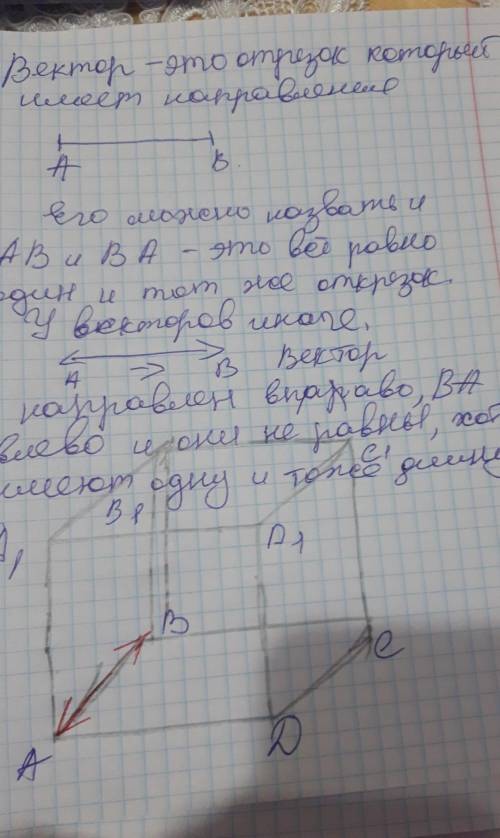 Вектор - это отрезок который
имеет направление
А В
Его можно назвать и
АВ и ВА - это всё равно
один и тот же открезок.
У векторов иначе.
А В Вектор
направлен вправо, ВА
влево и они не равны, хот
имеют одну и тоже длину
B1 C1
А1 D1
В
С
А D